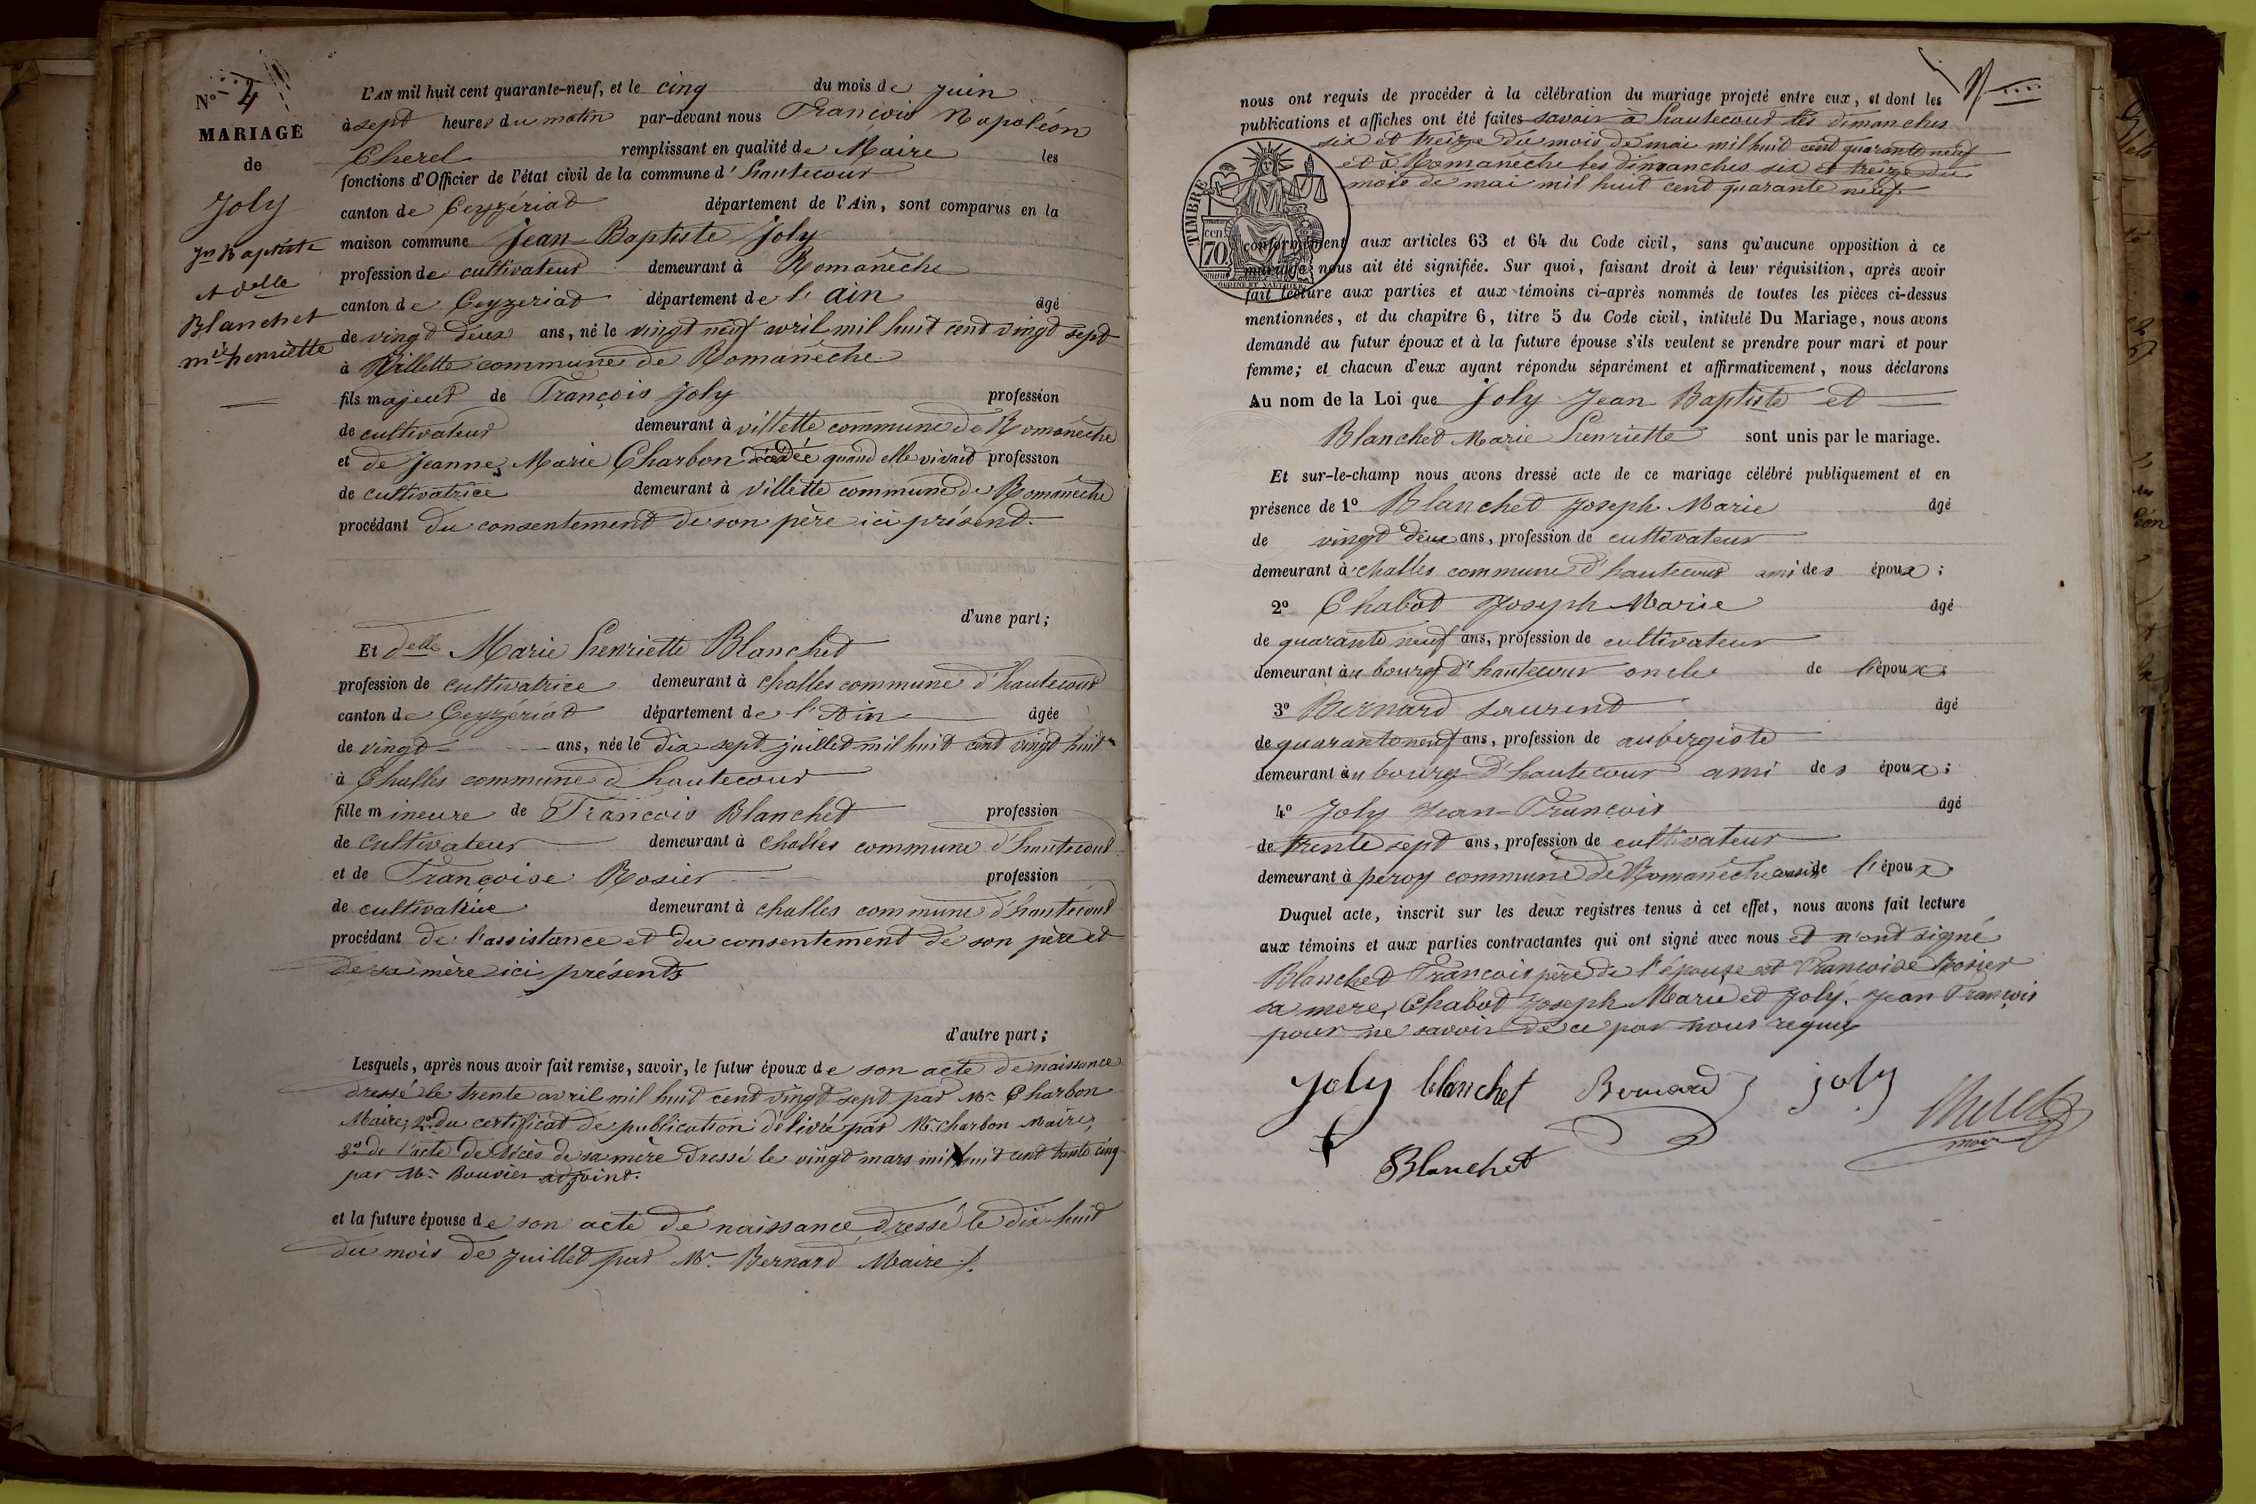 N.o 4
MARIAGE
de
Joly
Jn Baptiste
et delle
Blanchet
mie henriette
L'AN mil huit cent quarante-neuf, et le cinq du mois de juin
à sept heures du matin par-devant nous François Napoléon
Cherel remplissant en qualité de Maire les
fonctions d'Officier de l'état civil de la commune d'hautecour
canton de Ceyzériat département de l'Ain, sont comparus en la
maison commune Jean Baptiste Joly
profession de cultivateur demeurant à Romanèche
canton de Ceyzeriat département de l'ain âgé
de vingt deux ans, né le vingt neuf avril mil huit cent vingt sept
à Villette commune de Romanèche
fils majeur de François Joly profession
de cultivateur demeurant à villette commune de Romanèche
et de Jeanne Marie Charbon décédée quand elle vivait profession
de cultivatrice demeurant à villette commune de Romanèche
procédant du consentement de son père ici présent.
d'une part;
Et delle Marie henriette Blanchet
profession de cultivatrice demeurant à challes commune d'hautecour
canton de Ceyzériat département de l'Ain âgée
de vingt ans, née le dix sept juillet mil huit cent vingt huit
à Challes commune d'hautecour
fille mineure de François Blanchet profession
de cultivateur demeurant à challes commune d'hautecour
et de Françoise Rosier profession
de cultivatrice demeurant à challes commune d'hautecour
procédant de l'assistance et du consentement de son père et
de sa mère ici présents
d'autre part;
Lesquels, après nous avoir fait remise, savoir, le futur époux de son acte de naissance
dressé le trente avril mil huit cent vingt sept par Mr Charbon
Maire, 2o du certificat de publication délivré par Mr charbon Maire,
3o de l'acte de décès de sa mère dressé le vingt mars mil huit cent trente cinq
par Mr Bouvier adjoint.
et la future épouse de son acte de naissance dressé le dix-huit
du mois de juillet par Mr Bernard Maire
nous ont requis de procéder à la célébration du mariage projeté entre eux, et dont les
publications et affiches ont été faites savoir à hautecour les dimanches
six et treize du mois de mai mil huit cent quarante neuf
et à Romanèche les dimanches six et treize du
mois de mai mil huit cent quarante neuf.
TIMBRE
70 cen.
conformément aux articles 63 et 64 du Code civil, sans qu'aucune opposition à ce
mariage nous ait été signifiée. Sur quoi, faisant droit à leur réquisition, après avoir
fait lecture aux parties et aux témoins ci-après nommés de toutes les pièces ci-dessus
mentionnées, et du chapitre 6, titre 5 du Code civil, intitulé Du Mariage, nous avons
demandé au futur époux et à la future épouse s'ils veulent se prendre pour mari et pour
femme; et chacun d'eux ayant répondu séparément et affirmativement, nous déclarons
Au nom de la Loi que Joly Jean Baptiste et
Blanchet Marie henriette sont unis par le mariage.
Et sur-le-champ nous avons dressé acte de ce mariage célébré publiquement et en
présence de 1o Blanchet Joseph Marie âgé
de vingt deux ans, profession de cultivateur
demeurant à challes commune d'hautecour ami des époux;
2o Chabot Joseph Marie âgé
de quarante neuf ans, profession de cultivateur
demeurant au bourg d'hautecour oncle de l'époux;
3o Bernard Laurent âgé
de quarante neuf ans, profession de aubergiste
demeurant au bourg d'hautecour ami des époux;
4o Joly Jean-François âgé
de trente sept ans, profession de cultivateur
demeurant à peroy commune de Romanèche cousin de l'époux
Duquel acte, inscrit sur les deux registres tenus à cet effet, nous avons fait lecture
aux témoins et aux parties contractantes qui ont signé avec nous et n'ont signé
Blanchet François père de l'épouse et Françoise Rosier
sa mere, Chabot Joseph Marie et Joly Jean François
pour ne savoir de ce par nous requis
Joly blanchet Bernard joly Cherel
maire
Blanchet